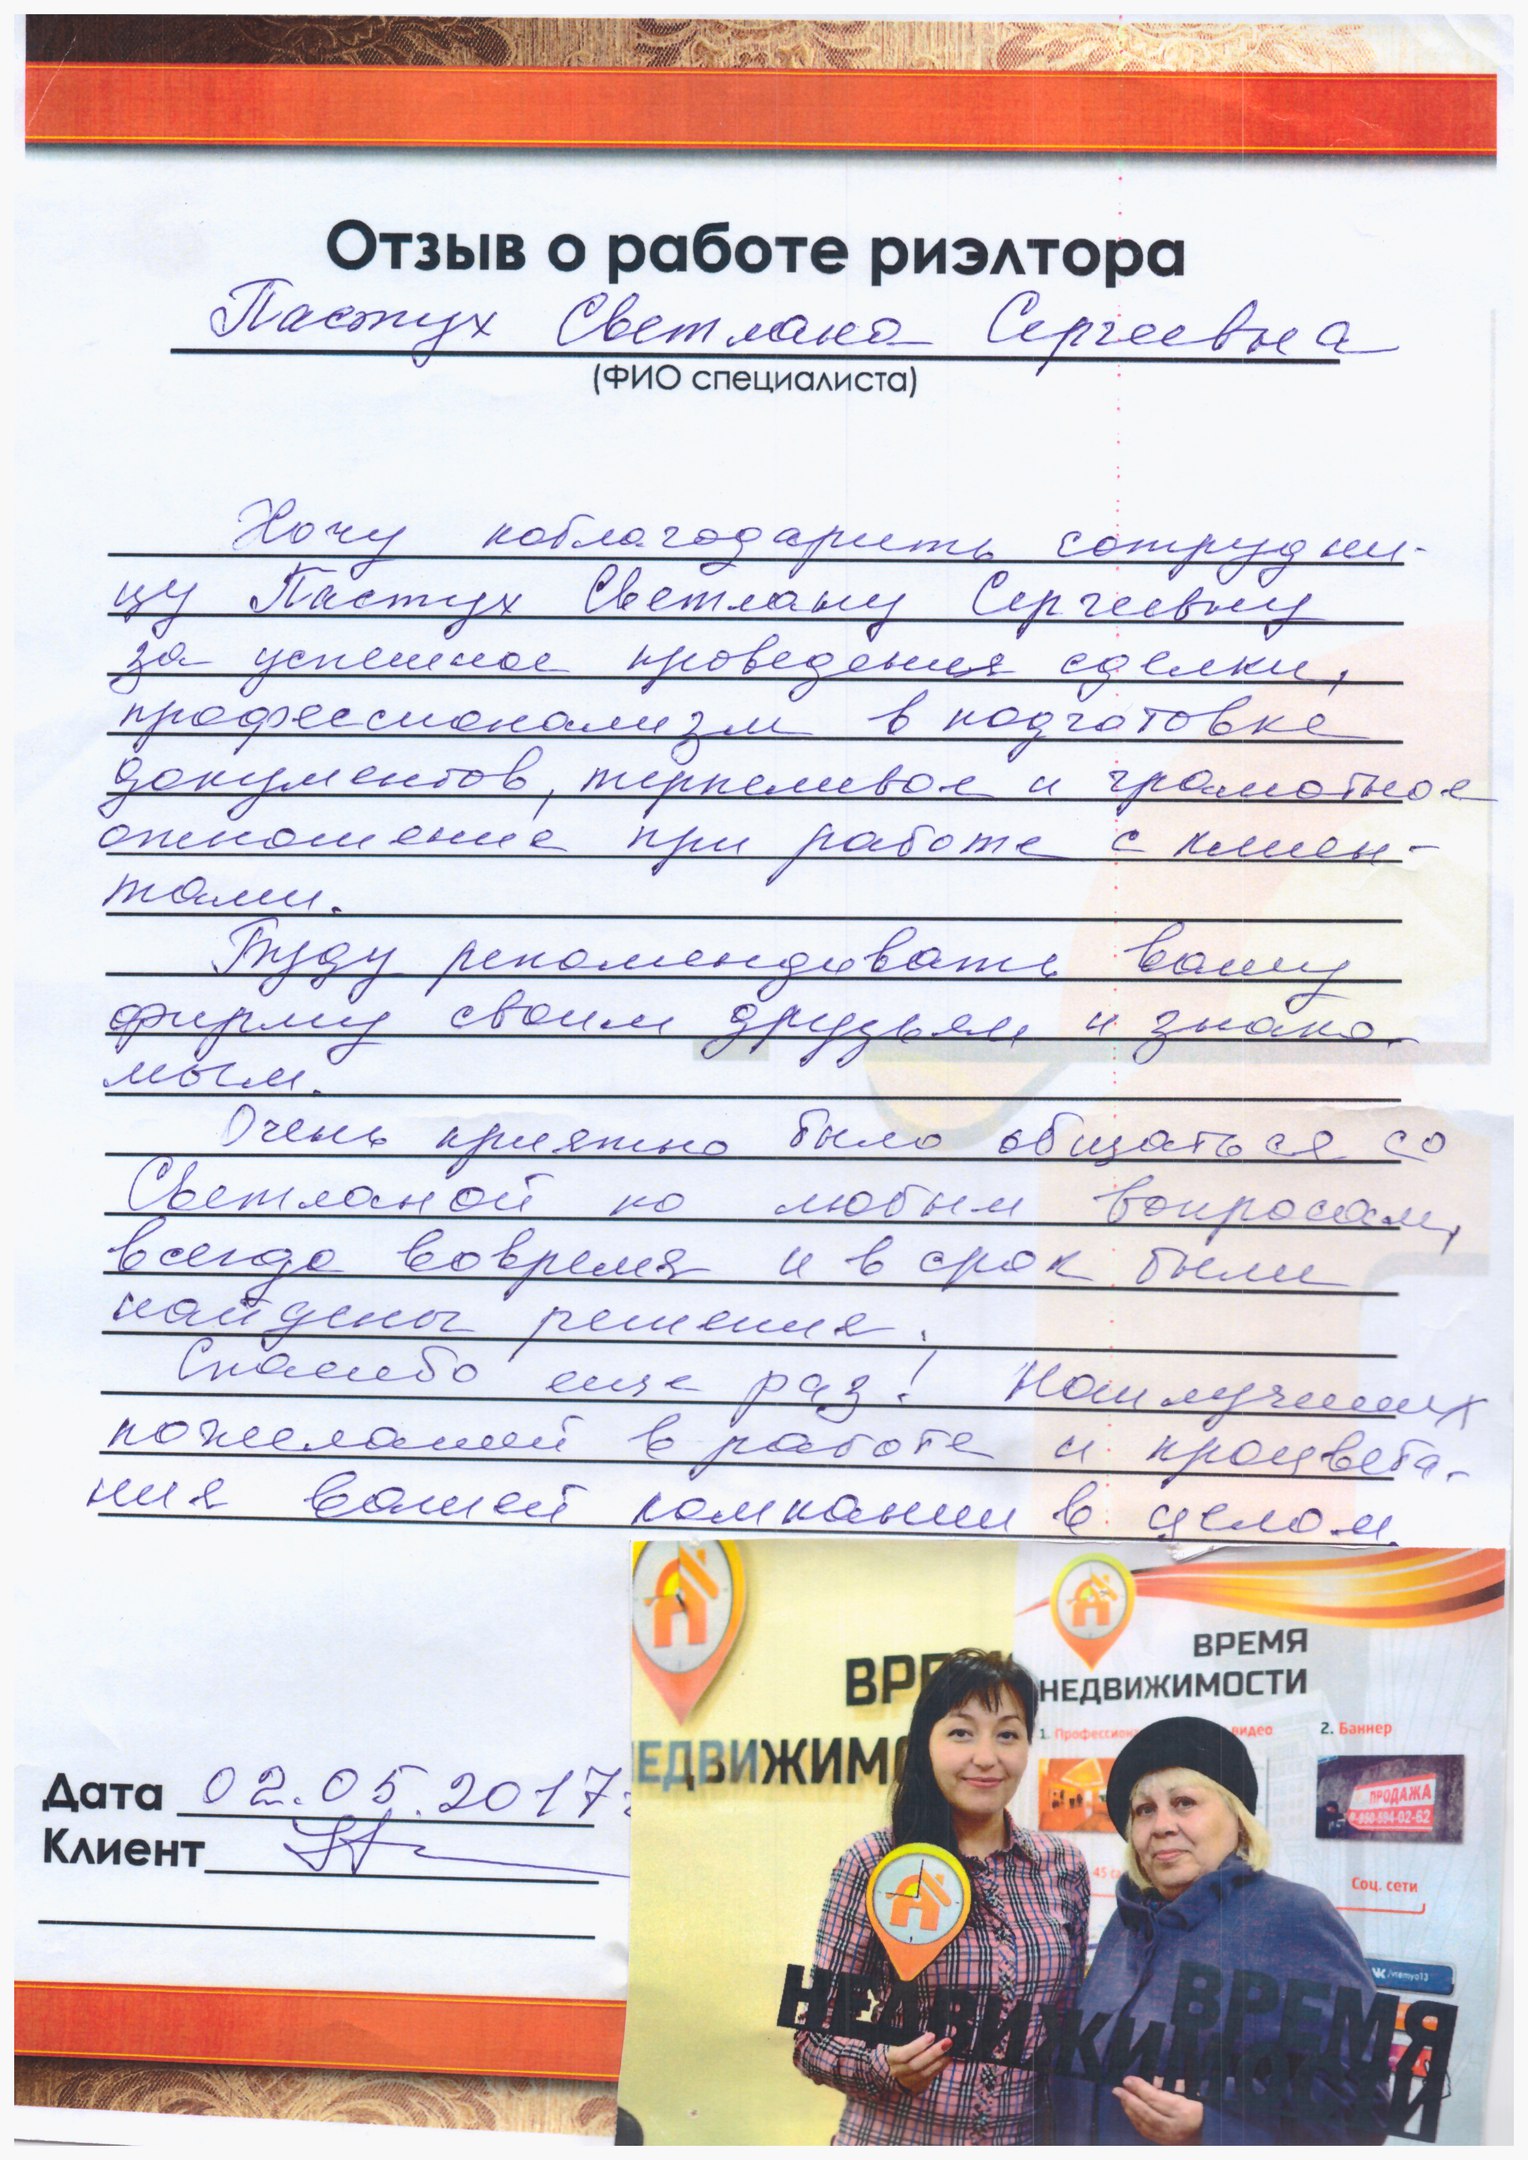 Отзыв о работе риэлтора
Пастух Светлана Сергеевна
(ФИО специалиста)
Хочу поблагодарить сотрудни-
цу Пастух Светлану Сергеевну
за успешное проведения сделки,
профессионализм в подготовке
документов, терпеливое и грамотное
отношение при работе с клиен-
тами.
Буду рекомендовать вашу
фирму своим друзьям и знако-
мым.
Очень приятно было общаться со
Светланой по любым вопросам,
всегда вовремя и в срок были
найдены решения.
Спасибо еще раз! Наилучших
пожеланий в работе и процвета-
ния вашей компании в целом.
Дата 02.05.2017г
Клиент
ВРЕМ
НЕДВИЖИМО
ВРЕМЯ
НЕДВИЖИМОСТИ
1. Профессион видео
2. Баннер
ПРОДАЖА
8-950-594-02-62
45 са
Соц. сети
/vremyo13
ВРЕМЯ
НЕДВИЖИМОСТИ